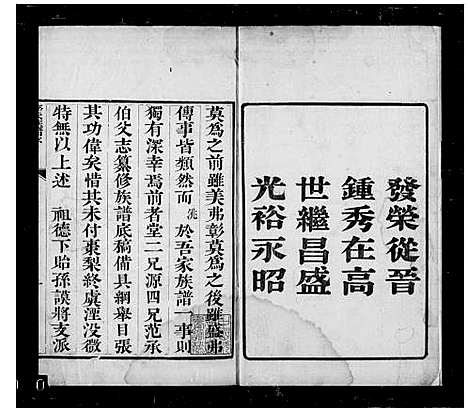 發榮從晉
鍾秀在高
世繼昌盛
光裕永昭
莫為之前雖美弗彰莫為之後雖盛弗
傳事皆類然而 於吾家族譜一事則
獨有深幸焉前者堂二兄源四兄范承
伯父志纂修族譜底稿備具綱舉目張
其功偉矣惜其未付棗梨終虞湮沒微
特無以上述 祖德下貽孫謨將支派